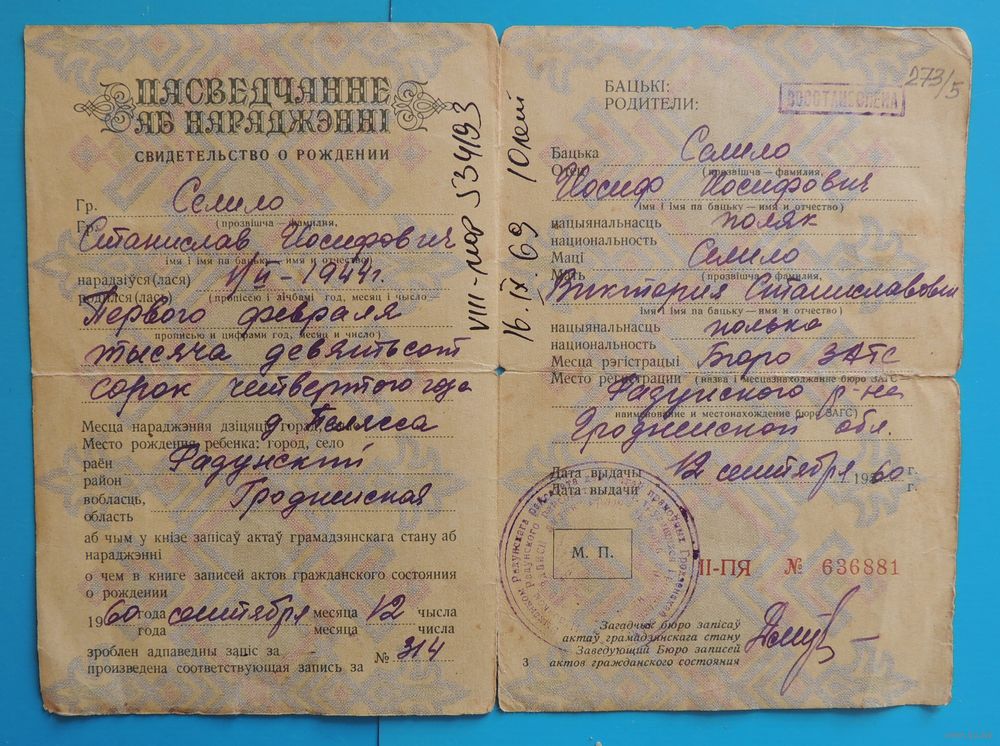 ПАСВЕДЧАННЕ
АБ НАРАДЖЭННІ
СВИДЕТЕЛЬСТВО О РОЖДЕНИИ
Гр. Семило
Гр. (прозвішча – фамилия,
Станислав Иосифович
імя і імя па бацьку – имя и отчество)
нарадзіўся(лася) 1/II – 1944 г.
родился(лась) (прописсю і лічбамі год, месяц і число
Первого февраля
прописью и цифрами год, месяц и число)
тысяча девятьсот
сорок четвертого года
Месца нараджэння дзіцяці: горад, д. Пелясса
Место рождения ребенка: город, село
раён Радунский
район
вобласць, Гродненская
область
аб чым у кнізе запісаў актаў грамадзянскага стану аб
нараджэнні
о чем в книге записей актов гражданского состояния
о рождении
1960 года сентября месяца 12 чысла
года месяца числа
зроблен адпаведны запіс за № 314
произведена соответствующая запись за
VIII-мор 534193
16.IX.69 Юлей
273/5
БАЦЬКІ:
РОДИТЕЛИ:
ВОССТАНОВЛЕНА
Бацька Семило
Отец (прозвішча – фамилия,
Иосиф Иосифович
імя і імя па бацьку – имя и отчество)
нацыянальнасць поляк
национальность
Маці Семило
Мать (прозвішча – фамилия,
Виктория Станиславовна
імя і імя па бацьку – имя и отчество)
нацыянальнасць полька
национальность
Месца рэгістрацыі Бюро ЗАГС
Место регистрации (назва і месцазнаходжанне бюро ЗАГС
Радунского р-на
наименование и местонахождение бюро ЗАГС)
Гродненской обл.
Дата выдачы 12 сентября 1960 г.
Дата выдачи г.
М. П.
II-ПЯ № 636881
Загадчык бюро запісаў
актаў грамадзянскага стану
Заведующий Бюро записей
актов гражданского состояния
3